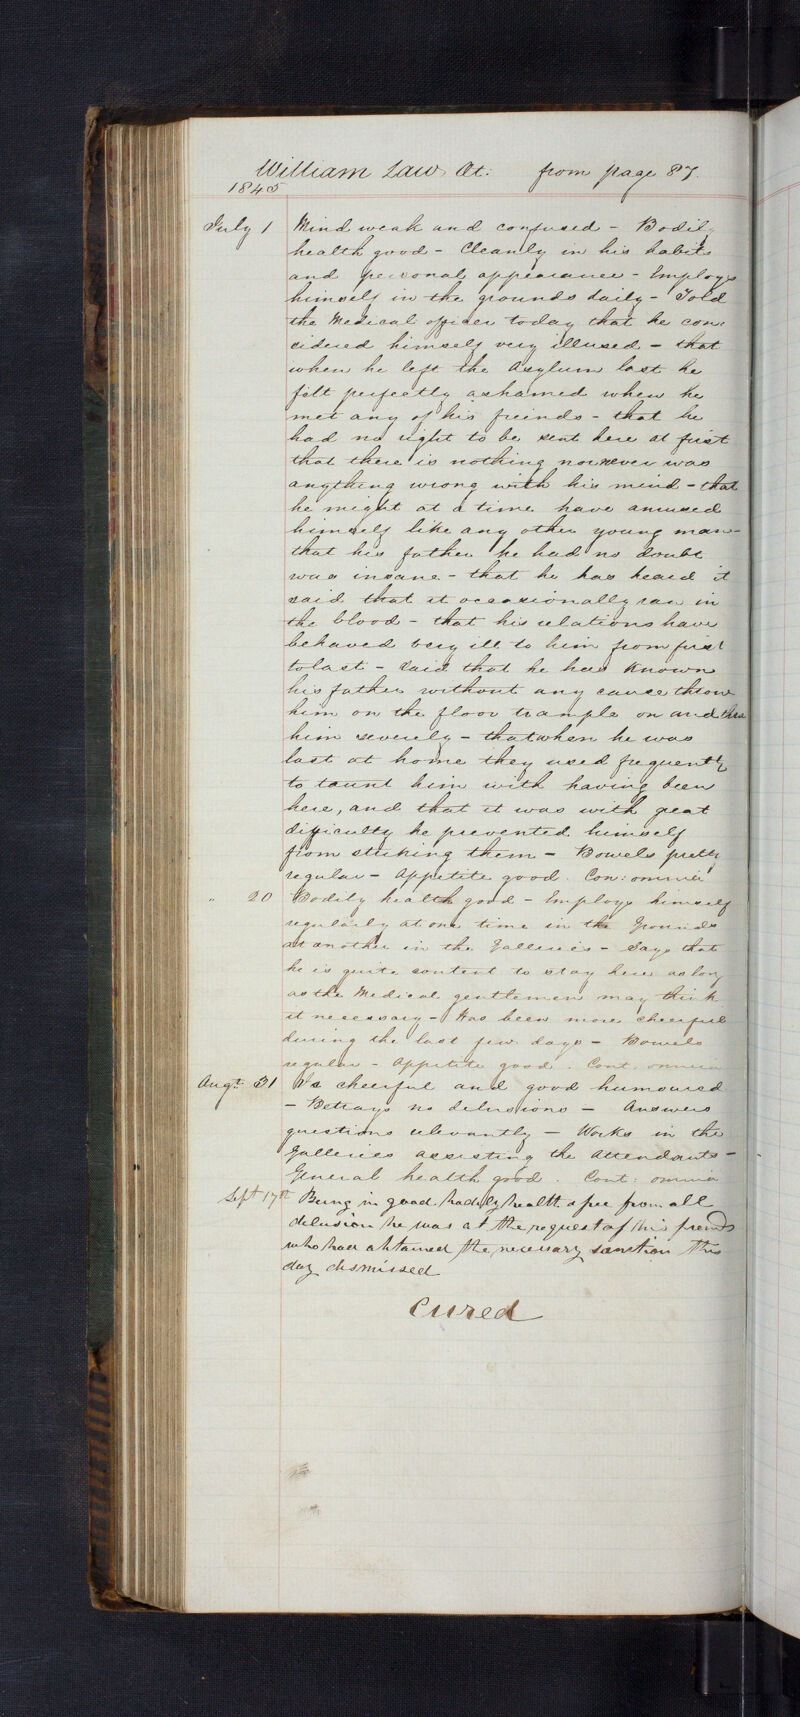 William Law Æt: from page 87.
1845
July 1 Mind weak and confused – Bodily
health good – Cleanly in his habits
and personal appearance – Employs
himself in the grounds daily – Told
the Medical officer today that he con:
sidered himself very illused – that
when he left the Asylum last he
felt perfectly ashamed when he
met any of his freinds – that he
had no right to be sent here at first
that there is nothing nor never was
anything wrong with his mind – that
he might at a time have amused
himself like any other young man –
that his father he had no doubt
was insane – that he has heard it
said that it occasionally ran in
the blood – that his relations have
behaved very ill to him from first
to last – said that he has known
his father without any cause throw
him on the floor trample on and
him severely – that when he was
last at home they used frequently
to taunt him with having been
here, and that it was with great
difficulty he prevented himself
from striking them – Bowels pretty
regular – Appetite good. Con: omnia
" 20 Bodily health good – Employs himself
regularly at one time in the Grounds
at another in the Galleries – Says that
he is quite content to stay here as long
as the Medical gentlemen may think
it necessary – Has been more cheerful
during the last few days – Bowels
regular – Appetite good. Cont. omnia
Augt. 31 Is cheerful and good humoured
– Betrays no delusions – Answers
questions relevantly – Works in the
Galleries assisting the attendants –
General health good. Cont: omnia
Sept 17th Being in good bodily health & free from all
delusion he was at the request of his friends
who had obtained the necessary sanction this
day dismissed
Cured